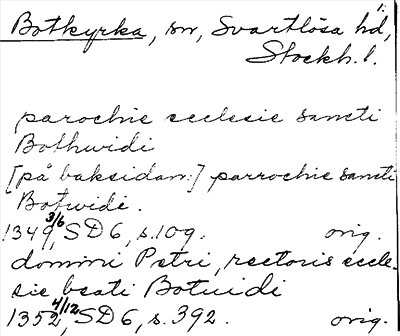 1.
Botkyrka, sn, Svartlösa hd,
Stockh. l.
parochie ecclesie sancti
Bothwidi
[på baksidan:] parrochie sancti
Botwidi.
1349 3/6, SD 6, s. 109. orig.
domini Petri, rectoris eccle-
sie beati Botuidi
1352 4/12, SD 6, s. 392. orig.